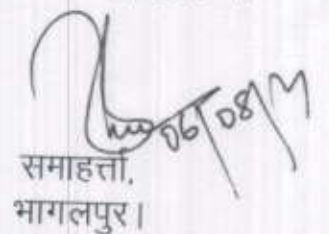 06/08/
समाहर्त्ता,
भागलपुर।